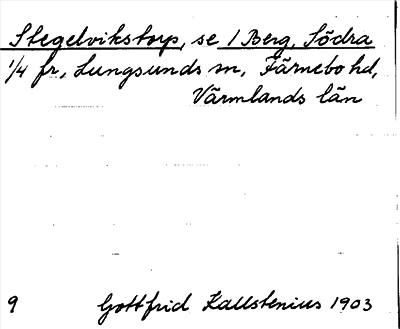 Stegelvikstorp, se / Berg, Södra
1/4 fr, Lungsunds sn, Färnebo hd,
Värmlands län
9 Gottfrid Kallstenius 1903